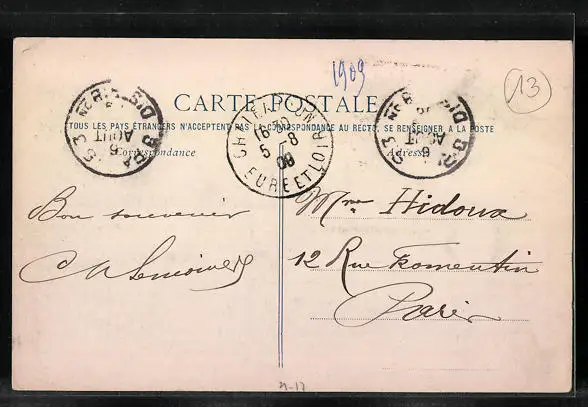 1909
13
CARTE POSTALE
TOUS LES PAYS ÉTRANGERS N'ACCEPTENT PAS LA CORRESPONDANCE AU RECTO, SE RENSEIGNER A LA POSTE
Correspondance
Adresse
CHATEAUDUN
16 30
5 - 8
09
EURE ET LOIR
Bon souvenir
Mme Hidoux
12 Rue Fromentin
Paris